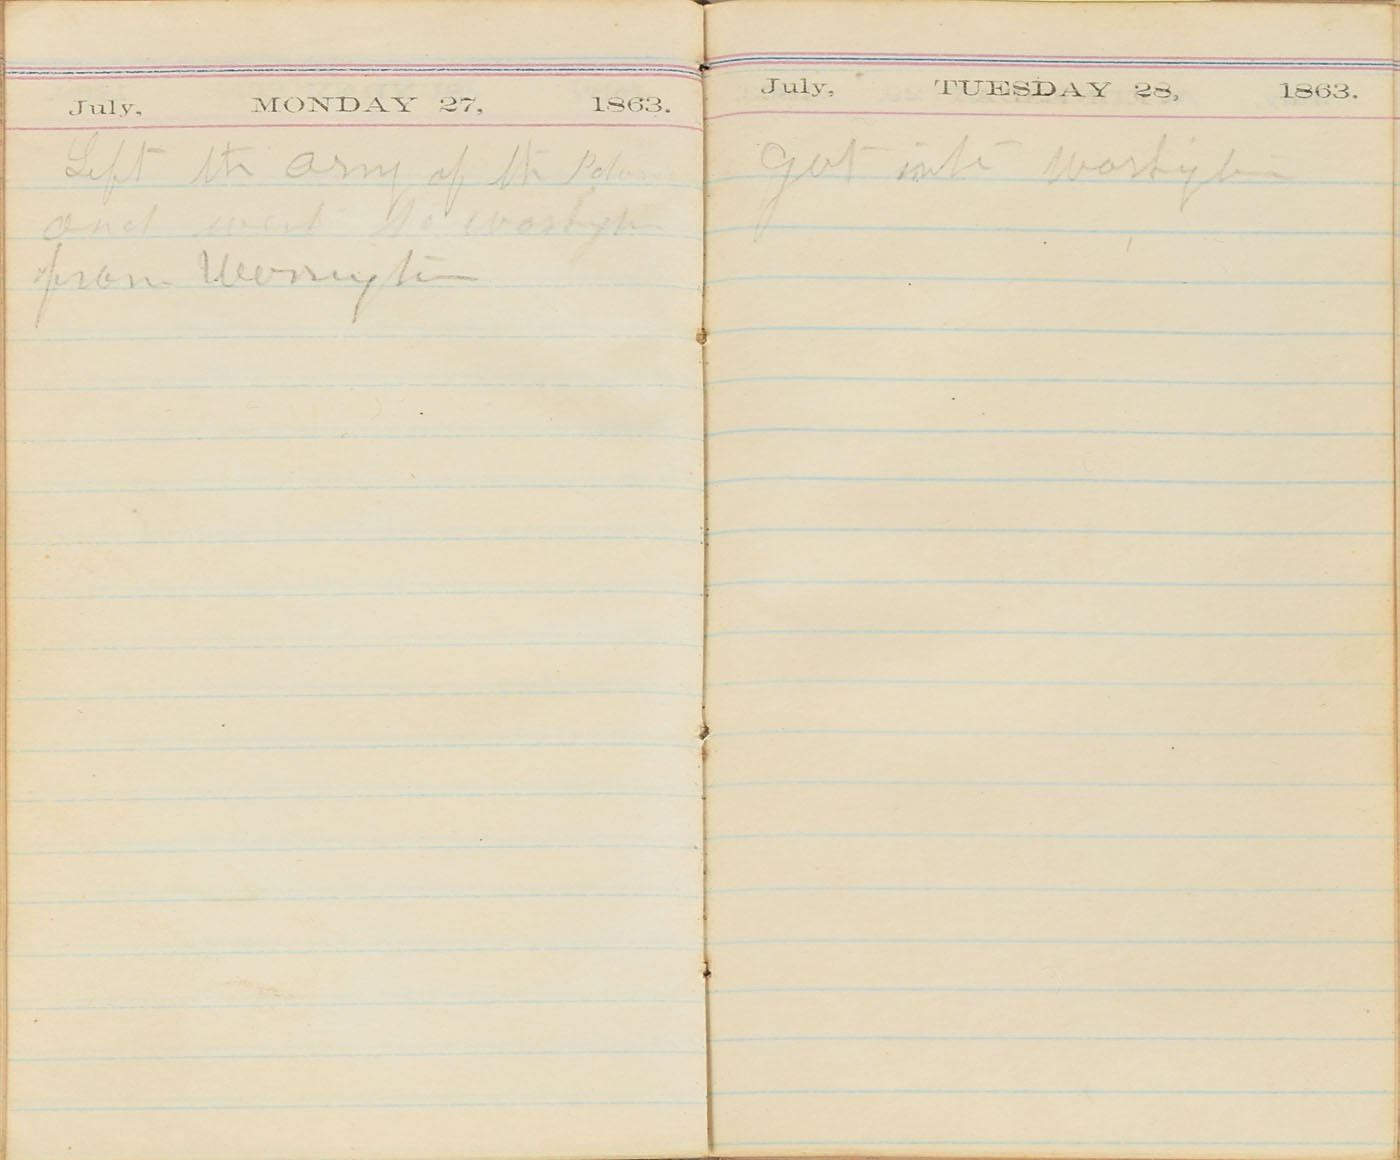 July, MONDAY 27, 1863.
Left the Army of the
and went to
from Warrington
July, TUESDAY 28, 1863.
Got into Washington